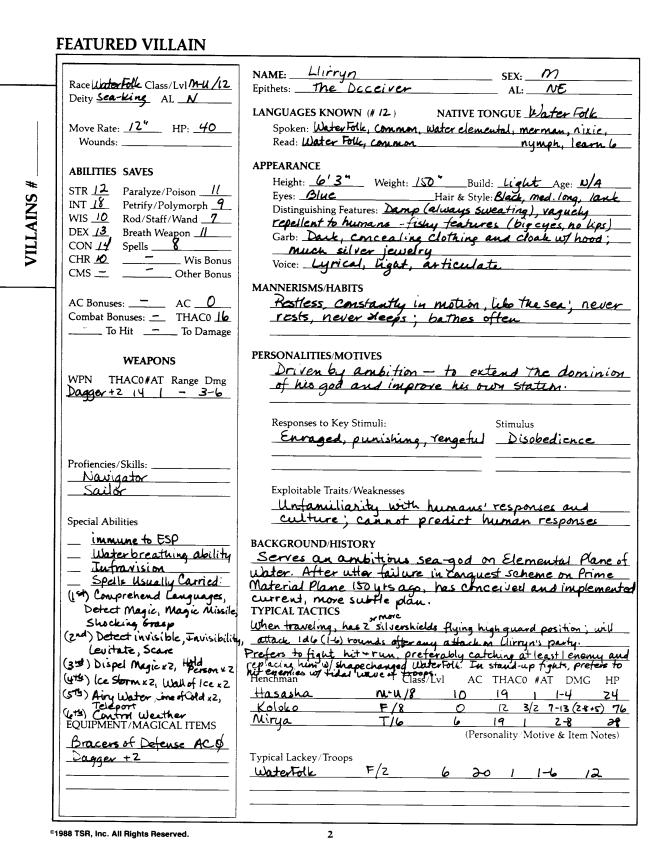 FEATURED VILLAIN
VILLAINS #
Race WaterFolk Class/Lvl M-U/12
Deity Sea-King AL N
Move Rate: 12" HP: 40
Wounds:
ABILITIES SAVES
STR 12 Paralyze/Poison 11
INT 18 Petrify/Polymorph 9
WIS 10 Rod/Staff/Wand 7
DEX 13 Breath Weapon 11
CON 14 Spells 8
CHR 10 - Wis Bonus
CMS - - Other Bonus
AC Bonuses: - AC 0
Combat Bonuses: - THAC0 16
To Hit - To Damage
WEAPONS
WPN THAC0 #AT Range Dmg
Dagger+2 14 1 - 3-6
Profiencies/Skills:
Navigator
Sailor
Special Abilities
immune to ESP
Waterbreathing ability
Infravision
Spells Usually Carried:
(1st) Comprehend Languages,
Detect Magic, Magic Missile,
Shocking Grasp
(2nd) Detect invisible, Invisibility,
Levitate, Scare
(3rd) Dispel Magic x2, Hold Person x2
(4th) Ice Storm x2, Wall of Ice x2
(5th) Airy Water, Cone of Cold x2,
Teleport
(6th) Control Weather
EQUIPMENT/MAGICAL ITEMS
Bracers of Defense AC 0
Dagger +2
NAME: Llirryn SEX: M
Epithets: The Deceiver AL: NE
LANGUAGES KNOWN (# 12) NATIVE TONGUE Water Folk
Spoken: Water Folk, common, water elemental, merman, nixie,
Read: Water Folk, common nymph, learn 6
APPEARANCE
Height: 6'3" Weight: 150# Build: Light Age: N/A
Eyes: Blue Hair & Style: Black, med. long, lank
Distinguishing Features: Damp (always sweating), vaguely
repellent to humans - fishy features (big eyes, no lips)
Garb: Dark, concealing clothing and cloak w/ hood;
much silver jewelry
Voice: Lyrical, light, articulate
MANNERISMS/HABITS
Restless, constantly in motion, like the sea; never
rests, never sleeps; bathes often
PERSONALITIES/MOTIVES
Driven by ambition — to extend the dominion
of his god and improve his own station.
Responses to Key Stimuli: Stimulus
Enraged, punishing, vengeful Disobedience
Exploitable Traits/Weaknesses
Unfamiliarity with humans' responses and
culture; cannot predict human responses
BACKGROUND/HISTORY
Serves an ambitious sea-god on Elemental Plane of
Water. After utter failure in conquest scheme on Prime
Material Plane 150 yrs ago, has conceived and implemented
current, more subtle plan.
TYPICAL TACTICS
When traveling, has 2 or more silvershields flying high guard position; will
attack 1d6 (1-6) rounds after any attack on Llirryn's party.
Prefers to fight hit + run, preferably catching at least 1 enemy and
replacing him w/ shapechanged WaterFolk. In stand-up fights, prefers to
hit enemies w/ tidal wave of troops.
Henchman Class/Lvl AC THAC0 #AT DMG HP
Hasasha M-U/8 10 19 1 1-4 24
Koloko F/8 0 12 3/2 7-13 (2d4+5) 76
Mirya T/6 6 19 1 2-8 29
(Personality Motive & Item Notes)
Typical Lackey/Troops
WaterFolk F/2 6 20 1 1-6 12
©1988 TSR, Inc. All Rights Reserved.
2